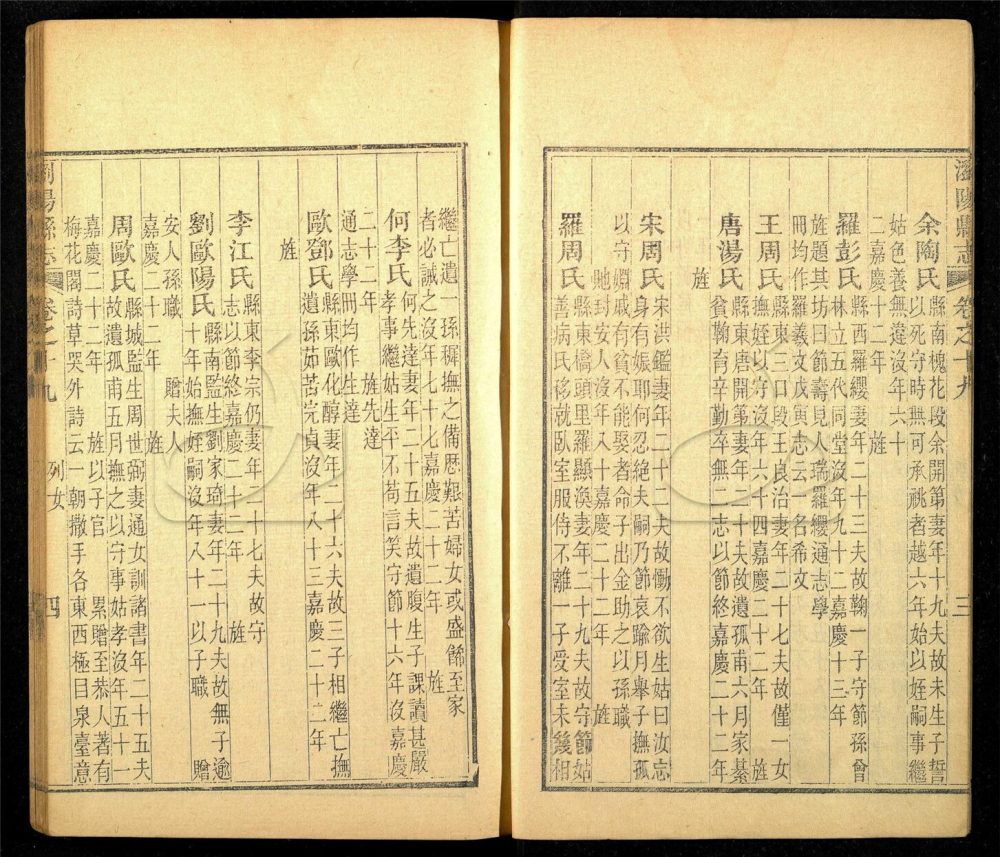 瀏陽縣志 卷之十九 三
余陶氏縣南槐花段余開第妻年十九夫故未生子誓
以死守時無可承祧者越六年始以姪嗣事繼
姑色養無違沒年六十
二嘉慶十二年 旌
羅彭氏縣西羅纓妻年二十三夫故鞠一子守節孫曾
林立五代同堂沒年九十二嘉慶十三年
旌題其坊曰節壽見人瑞羅纓通志學
冊均作羅羲文戊寅志云一名希文
王周氏縣東三口段王良治妻年二十七夫故僅一女
撫姪以守沒年六十四嘉慶二十二年 旌
唐湯氏縣東唐開第妻年二十夫故遺孤甫六月家綦
貧鞠育辛勤卒無二志以節終嘉慶二十二年
旌
宋周氏宋洪鑑妻年二十二夫故慟不欲生姑曰汝忘
身有娠耶何忍絕夫嗣乃節哀踰月舉子撫孤
以守嫺戚有貧不能娶者命子出金助之以孫職
貤封安人沒年八十嘉慶二十二年 旌
羅周氏縣東橋頭里羅顯渙妻年二十九夫故守節姑
善病氏移就臥室服侍不離一子受室未幾相
繼亡遺一孫穉撫之備歷艱苦婦女或盛餙至家
者必誡之沒年七十七嘉慶二十二年 旌
何李氏何先達妻年二十五夫故遺腹生子課讀甚嚴
孝事繼姑生平不苟言笑守節十六年沒嘉慶
二十二年 旌先達
通志學冊均作生達
歐鄧氏縣東歐化醇妻年二十六夫故三子相繼亡撫
遺孫茹苦完貞沒年八十三嘉慶二十二年
旌
李江氏縣東李宗仍妻年二十七夫故守
志以節終嘉慶二十二年 旌
劉歐陽氏縣南監生劉家琦妻年二十九夫故無子逾
十年始撫姪嗣沒年八十一以子職 贈
安人孫職 贈夫人
嘉慶二十二年 旌
周歐氏縣城監生周世弼妻通女訓諸書年二十五夫
故遺孤甫五月撫之以守事姑孝沒年五十一
嘉慶二十二年 旌以子官 累贈至恭人著有
梅花閣詩草哭外詩云一朝撒手各東西極目泉臺意
瀏陽縣志 卷之十九 列女 四